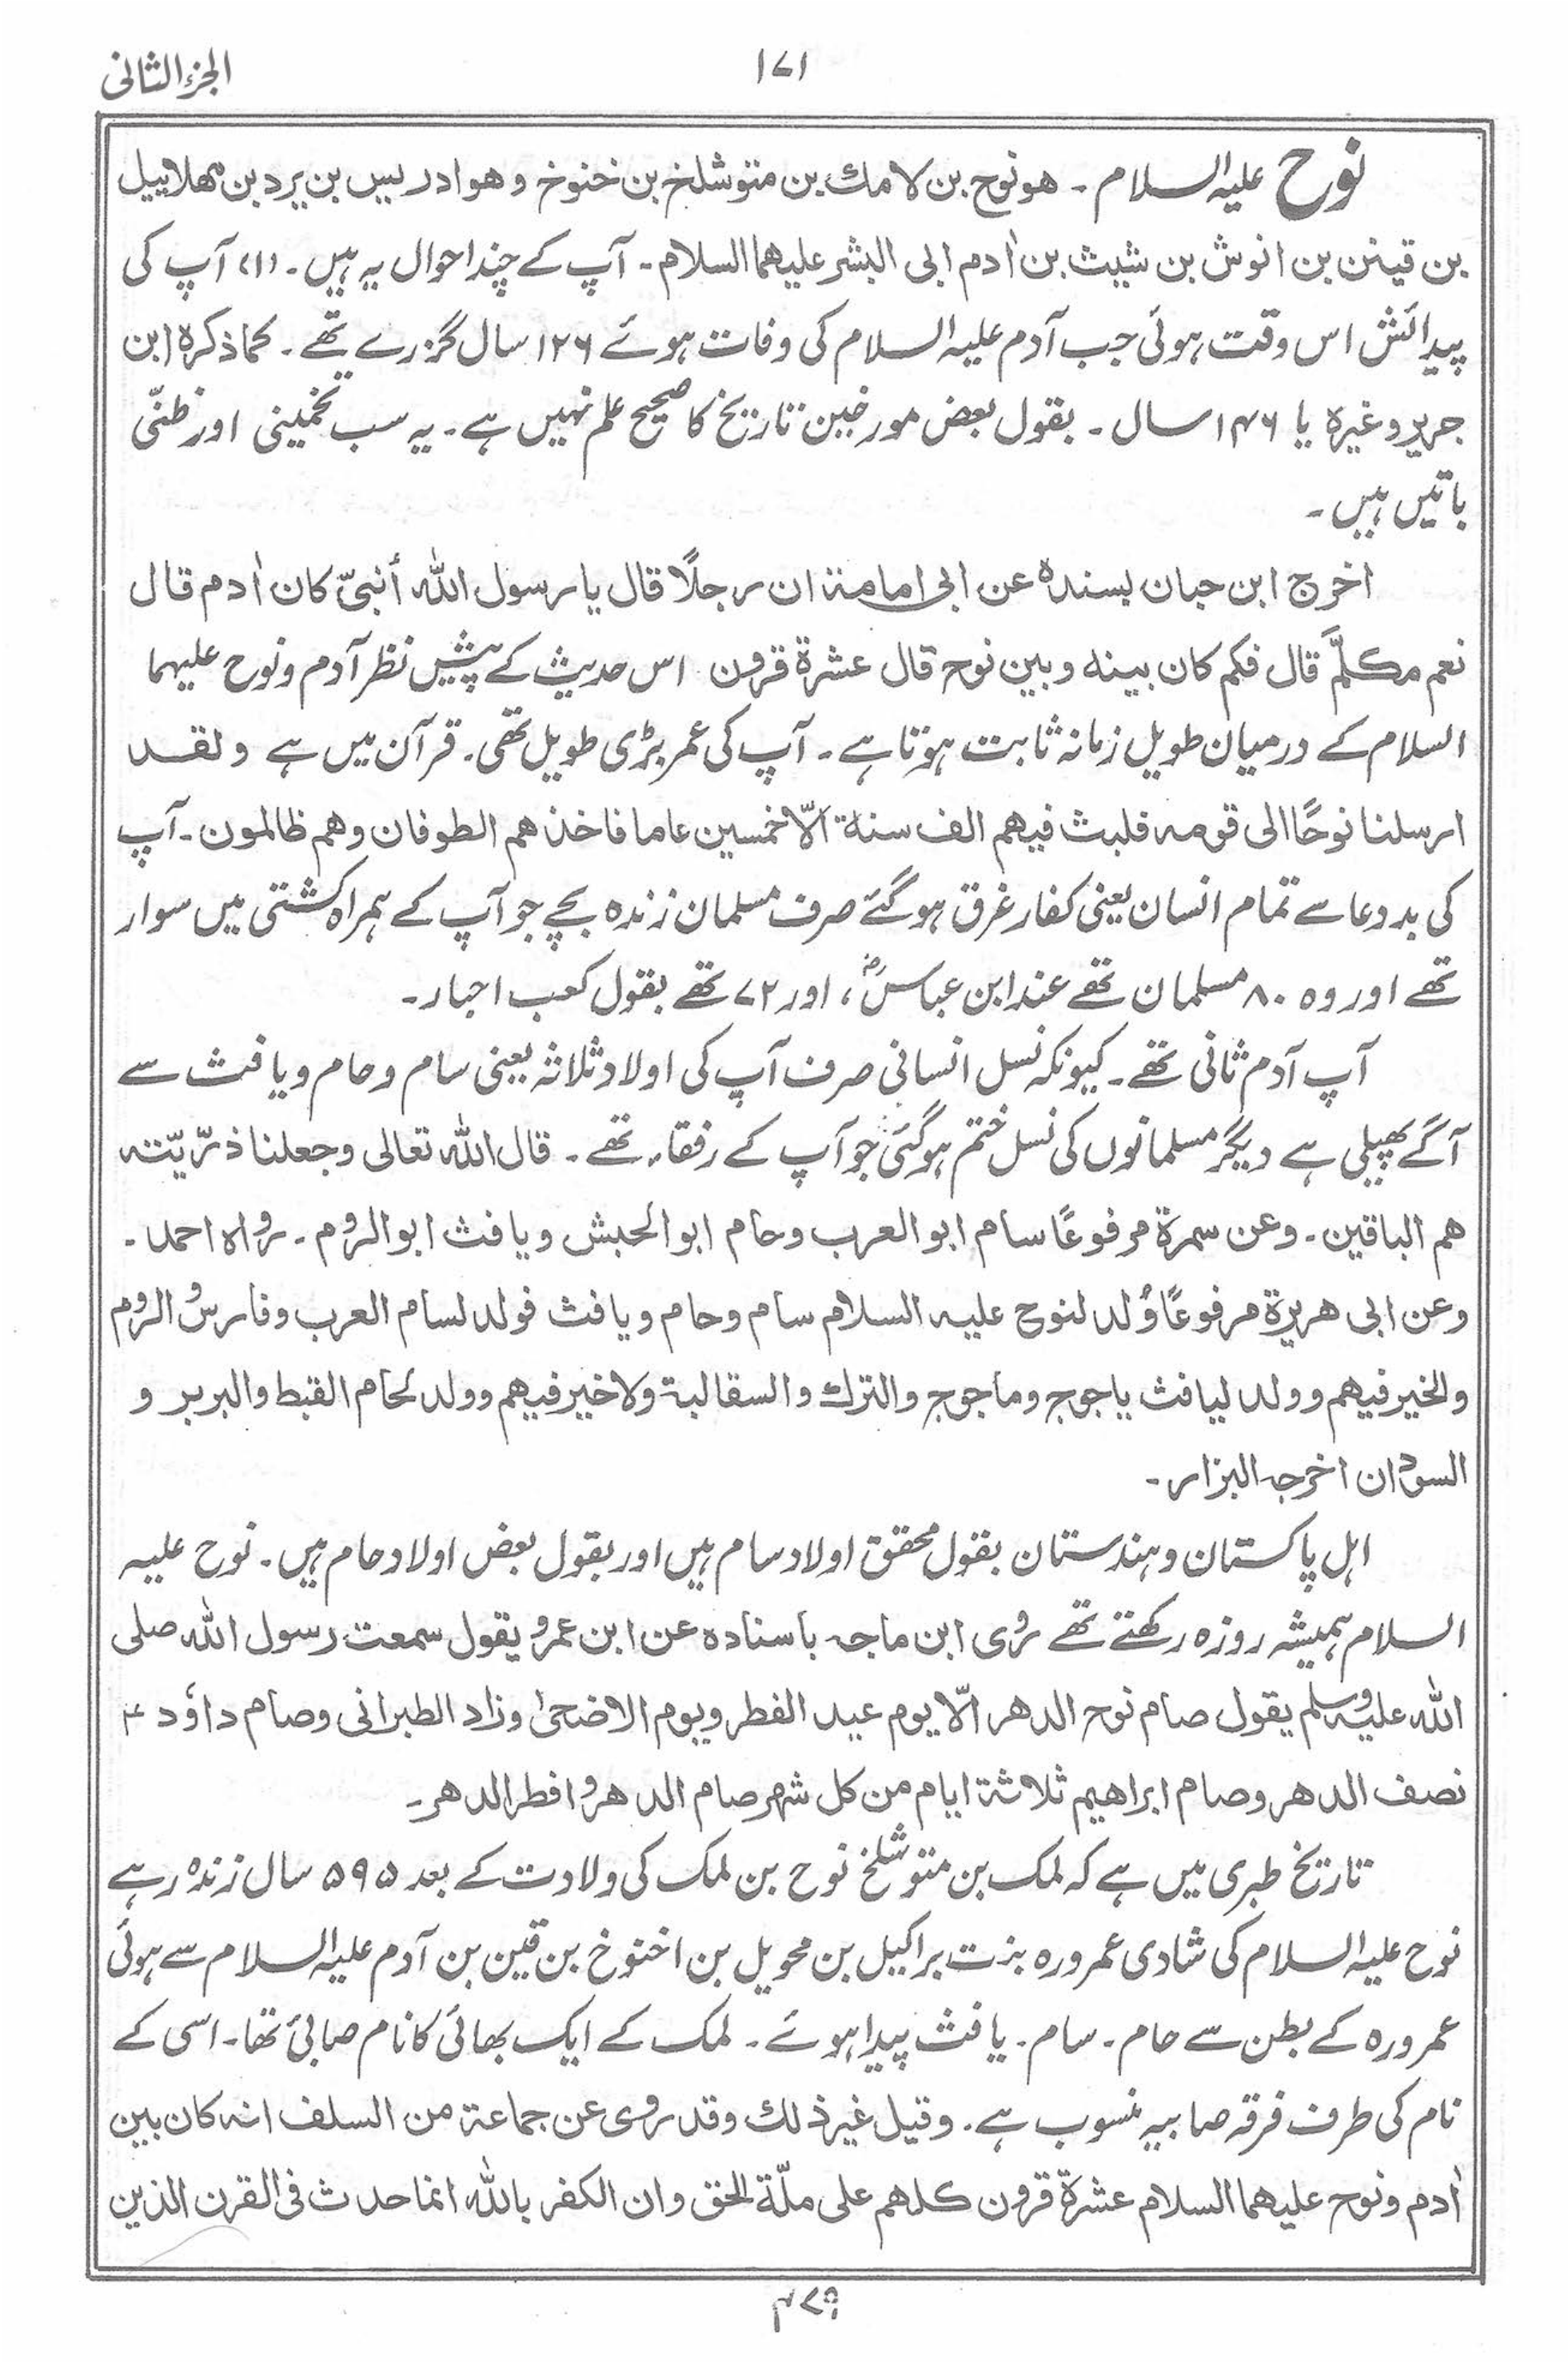 الجزء الثانی
۱۷۱
نوح علیہ السلام ۔ ھو نوح بن لامك بن متوشلخ بن خنوخ وھو ادریس بن یرد بن مھلاییل
بن قینن بن انوش بن شیث بن اٰدم ابی البشر علیھما السلام ۔ آپ کے چند احوال یہ ہیں ۔ (۱) آپ کی
پیدائش اس وقت ہوئی جب آدم علیہ السلام کی وفات ہوئے ۱۲۶ سال گزرے تھے ۔ کما ذکرہ ابن
جریر وغیرہ یا ۱۴۶ سال ۔ بقول بعض مورخین تاریخ کا صحیح علم نہیں ہے ۔ یہ سب تخمینی اور ظنّی
باتیں ہیں ۔
اخرج ابن حبان بسندہ عن ابی امامۃ ان رجلًا قال یا رسول اللہ أنبیّ کان اٰدم قال
نعم مکلَّم قال فکم کان بینہ وبین نوح قال عشرۃ قرون اس حدیث کے پیش نظر آدم و نوح علیہما
السلام کے درمیان طویل زمانہ ثابت ہوتا ہے ۔ آپ کی عمر بڑی طویل تھی ۔ قرآن میں ہے ولقد
ارسلنا نوحًا الی قومہ فلبث فیھم الف سنۃ الّا خمسین عاما فاخذھم الطوفان وھم ظالمون ۔ آپ
کی بددعا سے تمام انسان یعنی کفار غرق ہوگئے صرف مسلمان زندہ بچے جو آپ کے ہمراہ کشتی میں سوار
تھے اور وہ ۸۰ مسلمان تھے عند ابن عباسؓ ، اور ۷۲ تھے بقول کعب احبار ۔
آپ آدم ثانی تھے ۔ کیونکہ نسل انسانی صرف آپ کی اولاد ثلاثہ یعنی سام و حام و یافث سے
آگے پھیلی ہے دیگر مسلمانوں کی نسل ختم ہوگئی جو آپ کے رفقاء تھے ۔ قال اللہ تعالی وجعلنا ذرّیّتہ
ھم الباقین ۔ وعن سمرۃ مرفوعًا سام ابو العرب وحام ابو الحبش ویافث ابو الروم ۔ رواہ احمد ۔
وعن ابی ھریرۃ مرفوعًا وُلد لنوح علیہ السلام سام وحام ویافث فولد لسام العرب وفارس والروم
والخیر فیھم وولد لیافث یاجوج وماجوج والترك والسقالبۃ ولا خیر فیھم وولد لحام القبط والبربر و
السودان اخرجہ البزار ۔
اہل پاکستان و ہندستان بقول محقق اولاد سام ہیں اور بقول بعض اولاد حام ہیں ۔ نوح علیہ
السلام ہمیشہ روزہ رکھتے تھے روی ابن ماجہ باسنادہ عن ابن عمرو یقول سمعت رسول اللہ صلی
اللہ علیہ وسلم یقول صام نوح الدھر الّا یوم عید الفطر ویوم الاضحیٰ وزاد الطبرانی وصام داؤد ؑ
نصف الدھر وصام ابراھیم ثلاثۃ ایام من کل شھر صام الدھر وافطر الدھر ۔
تاریخ طبری میں ہے کہ لمک بن متوشلخ نوح بن لمک کی ولادت کے بعد ۵۹۵ سال زندہ رہے
نوح علیہ السلام کی شادی عمرورہ بنت براکیل بن محویل بن اخنوخ بن قین بن آدم علیہ السلام سے ہوئی
عمرورہ کے بطن سے حام ۔ سام ۔ یافث پیدا ہوئے ۔ لمک کے ایک بھائی کا نام صابئ تھا ۔ اسی کے
نام کی طرف فرقہ صابیہ منسوب ہے ۔ وقیل غیر ذلك وقد روی عن جماعۃ من السلف انہ کان بین
اٰدم ونوح علیھما السلام عشرۃ قرون کلھم علی ملّۃ الحق وان الکفر باللہ انما حدث فی القرن الذین